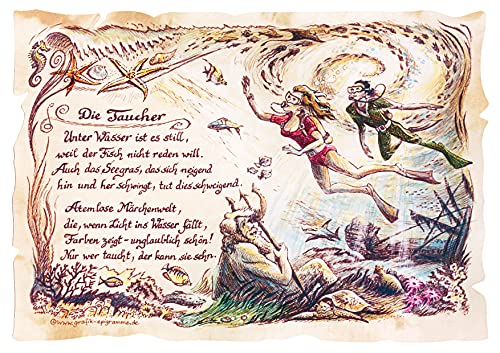 Die Taucher
Unter Wasser ist es still,
weil der Fisch nicht reden will.
Auch das Seegras, das sich neigend
hin und her schwingt, tut dies schweigend.
Atemlose Märchenwelt,
die, wenn Licht ins Wasser fällt,
Farben zeigt - unglaublich schön!
Nur wer taucht, der kann sie sehn.
©www.grafik-epigramme.de